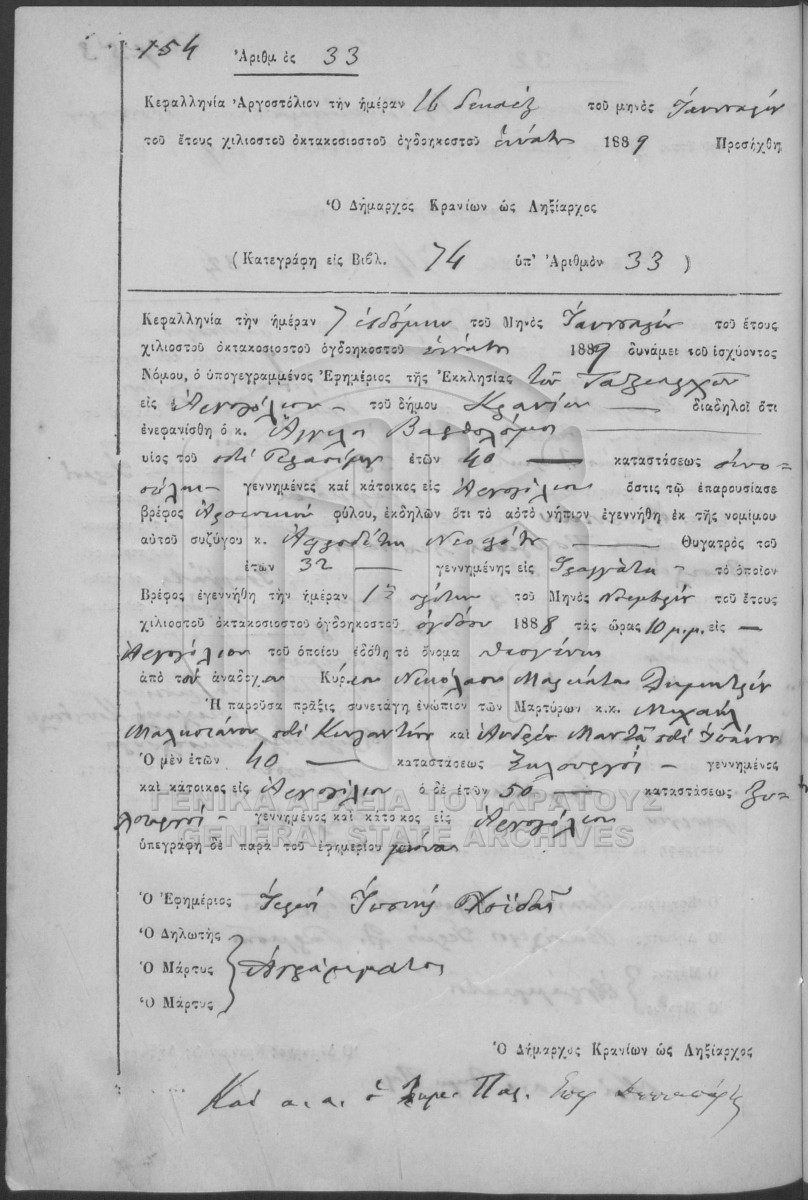 154 Ἀριθμὸς 33
Κεφαλληνία Ἀργοστόλιον τὴν ἡμέραν 16 δεκαέξ τοῦ μηνὸς Ἰανουαρίου
τοῦ ἔτους χιλιοστοῦ ὀκτακοσιοστοῦ ὀγδοηκοστοῦ ἐννάτου 1889 Προσήχθη
Ὁ Δήμαρχος Κρανίων ὡς Ληξίαρχος
(Κατεγράφη εἰς Βιβλ. 74 ὑπ' Ἀριθμὸν 33)
Κεφαλληνία τὴν ἡμέραν 7 ἑβδόμην τοῦ Μηνὸς Ἰανουαρίου τοῦ ἔτους
χιλιοστοῦ ὀκτακοσιοστοῦ ὀγδοηκοστοῦ ἐννάτου 1889 δυνάμει τοῦ ἰσχύοντος
Νόμου, ὁ ὑπογεγραμμένος Ἐφημέριος τῆς Ἐκκλησίας τῶν Ταξιαρχῶν
εἰς Ἀργοστόλιον τοῦ δήμου Κρανίων διαδηλοῖ ὅτι
ἐνεφανίσθη ὁ κ. Ἄγγελος Βαρθολόμος
υἱὸς τοῦ ποτὲ Γερασίμου ἐτῶν 40 καταστάσεως οἰνο-
πώλης γεννημένος καὶ κάτοικος εἰς Ἀργοστόλιον ὅστις τῷ ἐπαρουσίασε
βρέφος ἀρσενικοῦ φύλου, ἐκδηλῶν ὅτι τὸ αὐτὸ νήπιον ἐγεννήθη ἐκ τῆς νομίμου
αὐτοῦ συζύγου κ. Ἀφροδίτης Θυγατρὸς τοῦ
ἐτῶν 32 γεννημένης εἰς τὸ ὁποῖον
Βρέφος ἐγεννήθη τὴν ἡμέραν 1η πρώτην τοῦ Μηνὸς Νοεμβρίου τοῦ ἔτους
χιλιοστοῦ ὀκτακοσιοστοῦ ὀγδοηκοστοῦ ὀγδόου 1888 τὰς ὥρας 10 μ.μ. εἰς
Ἀργοστόλιον τοῦ ὁποίου ἐδόθη τὸ ὄνομα Θεαγένης
ἀπὸ τὸν ἀνάδοχον Κύριον Νικόλαον Δημητρίου
Ἡ παροῦσα πρᾶξις συνετάγη ἐνώπιον τῶν Μαρτύρων κ.κ. Μιχαὴλ
ποτὲ Κωνσταντίνου καὶ Ἀνδρέα ποτὲ Ἰωάννου
Ὁ μὲν ἐτῶν 40 καταστάσεως ξυλουργοῦ γεννημένος
καὶ κάτοικος εἰς Ἀργοστόλιον ὁ δὲ ἐτῶν 50 καταστάσεως ξυ-
λουργοῦ γεννημένος καὶ κάτοικος εἰς Ἀργοστόλιον
ὑπεγράφη δὲ παρὰ τοῦ ἐφημερίου μόνου
ΓΕΝΙΚΑ ΑΡΧΕΙΑ ΤΟΥ ΚΡΑΤΟΥΣ
GENERAL STATE ARCHIVES
Ὁ Ἐφημέριος Ἱερεὺς Ἰωάννης Χοϊδᾶς
Ὁ Δηλωτής
Ὁ Μάρτυς Ἀγράμματοι
Ὁ Μάρτυς
Ὁ Δήμαρχος Κρανίων ὡς Ληξίαρχος
Καὶ α. α. ὁ Δημ. Παρ.